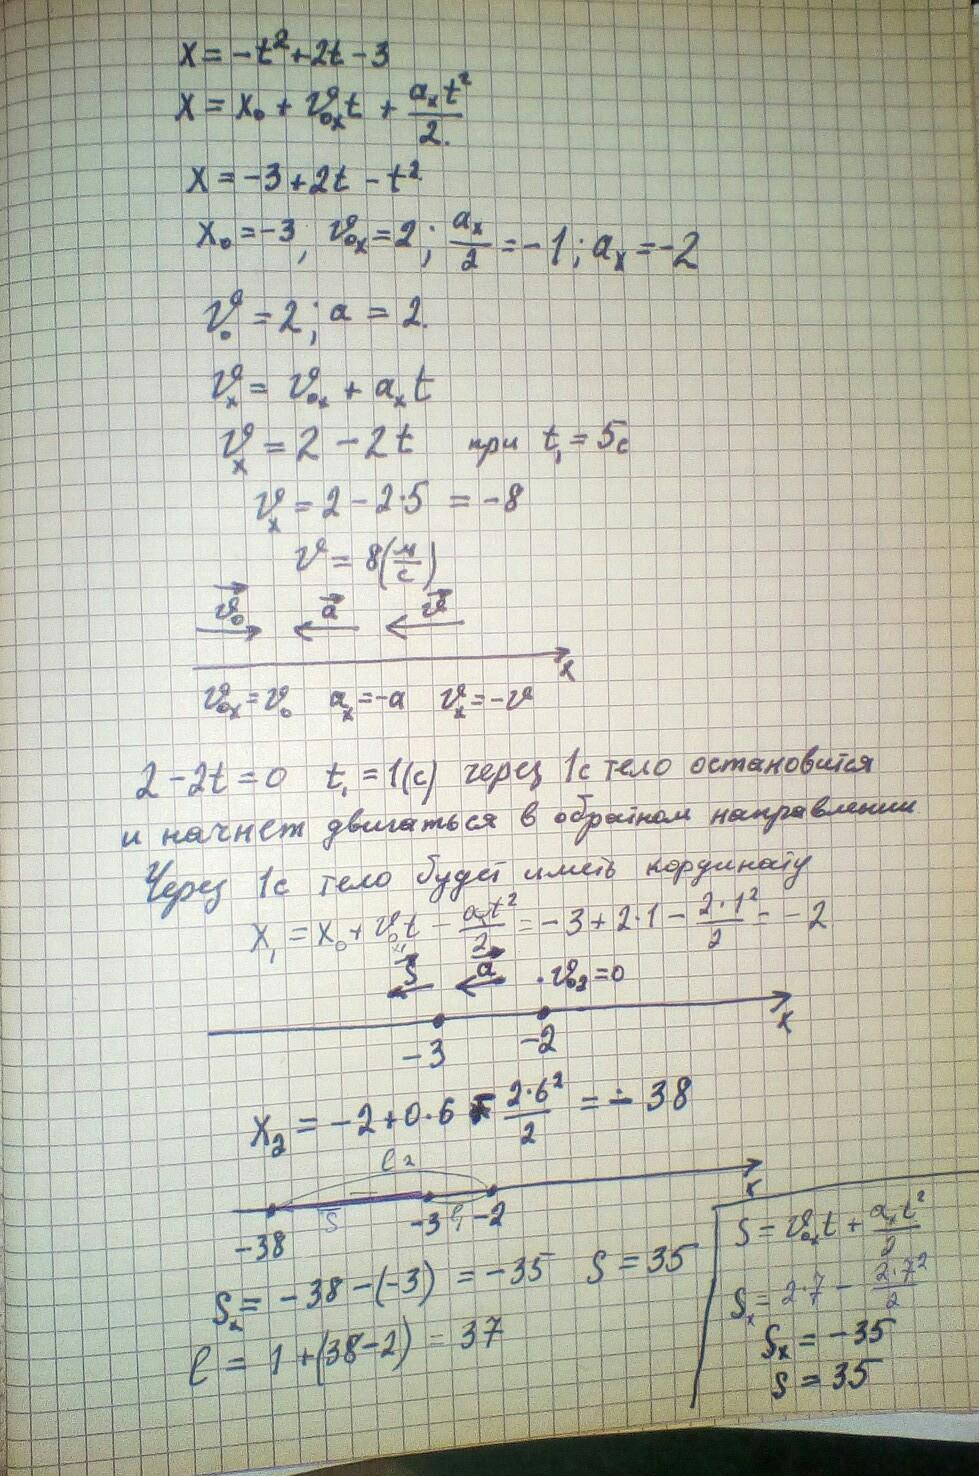 x = -t² + 2t - 3
x = x₀ + v₀ₓt + aₓt²/2.
x = -3 + 2t - t²
x₀ = -3; v₀ₓ = 2; aₓ/2 = -1; aₓ = -2
v₀ = 2; a = 2.
vₓ = v₀ₓ + aₓt
vₓ = 2 - 2t при t₁ = 5с
vₓ = 2 - 2·5 = -8
v = 8(м/с)
v₀ a v
x
v₀ₓ = v₀ aₓ = -a vₓ = -v
2 - 2t = 0 t₁ = 1(с) через 1с тело остановится
и начнет двигаться в обратном направлении.
Через 1с тело будет иметь кординату
x₁ = x₀ + v₀ₓt - aₓt²/2 = -3 + 2·1 - 2·1²/2 = -2
S a v₀₂ = 0
x
-3 -2
x₂ = -2 + 0·6 - 2·6²/2 = -38
l₂
x
S l₁
-38 -3 -2
Sₓ = -38 - (-3) = -35 S = 35
l = 1 + (38-2) = 37
S = v₀ₓt + aₓt²/2
Sₓ = 2·7 - 2·7²/2
Sₓ = -35
S = 35